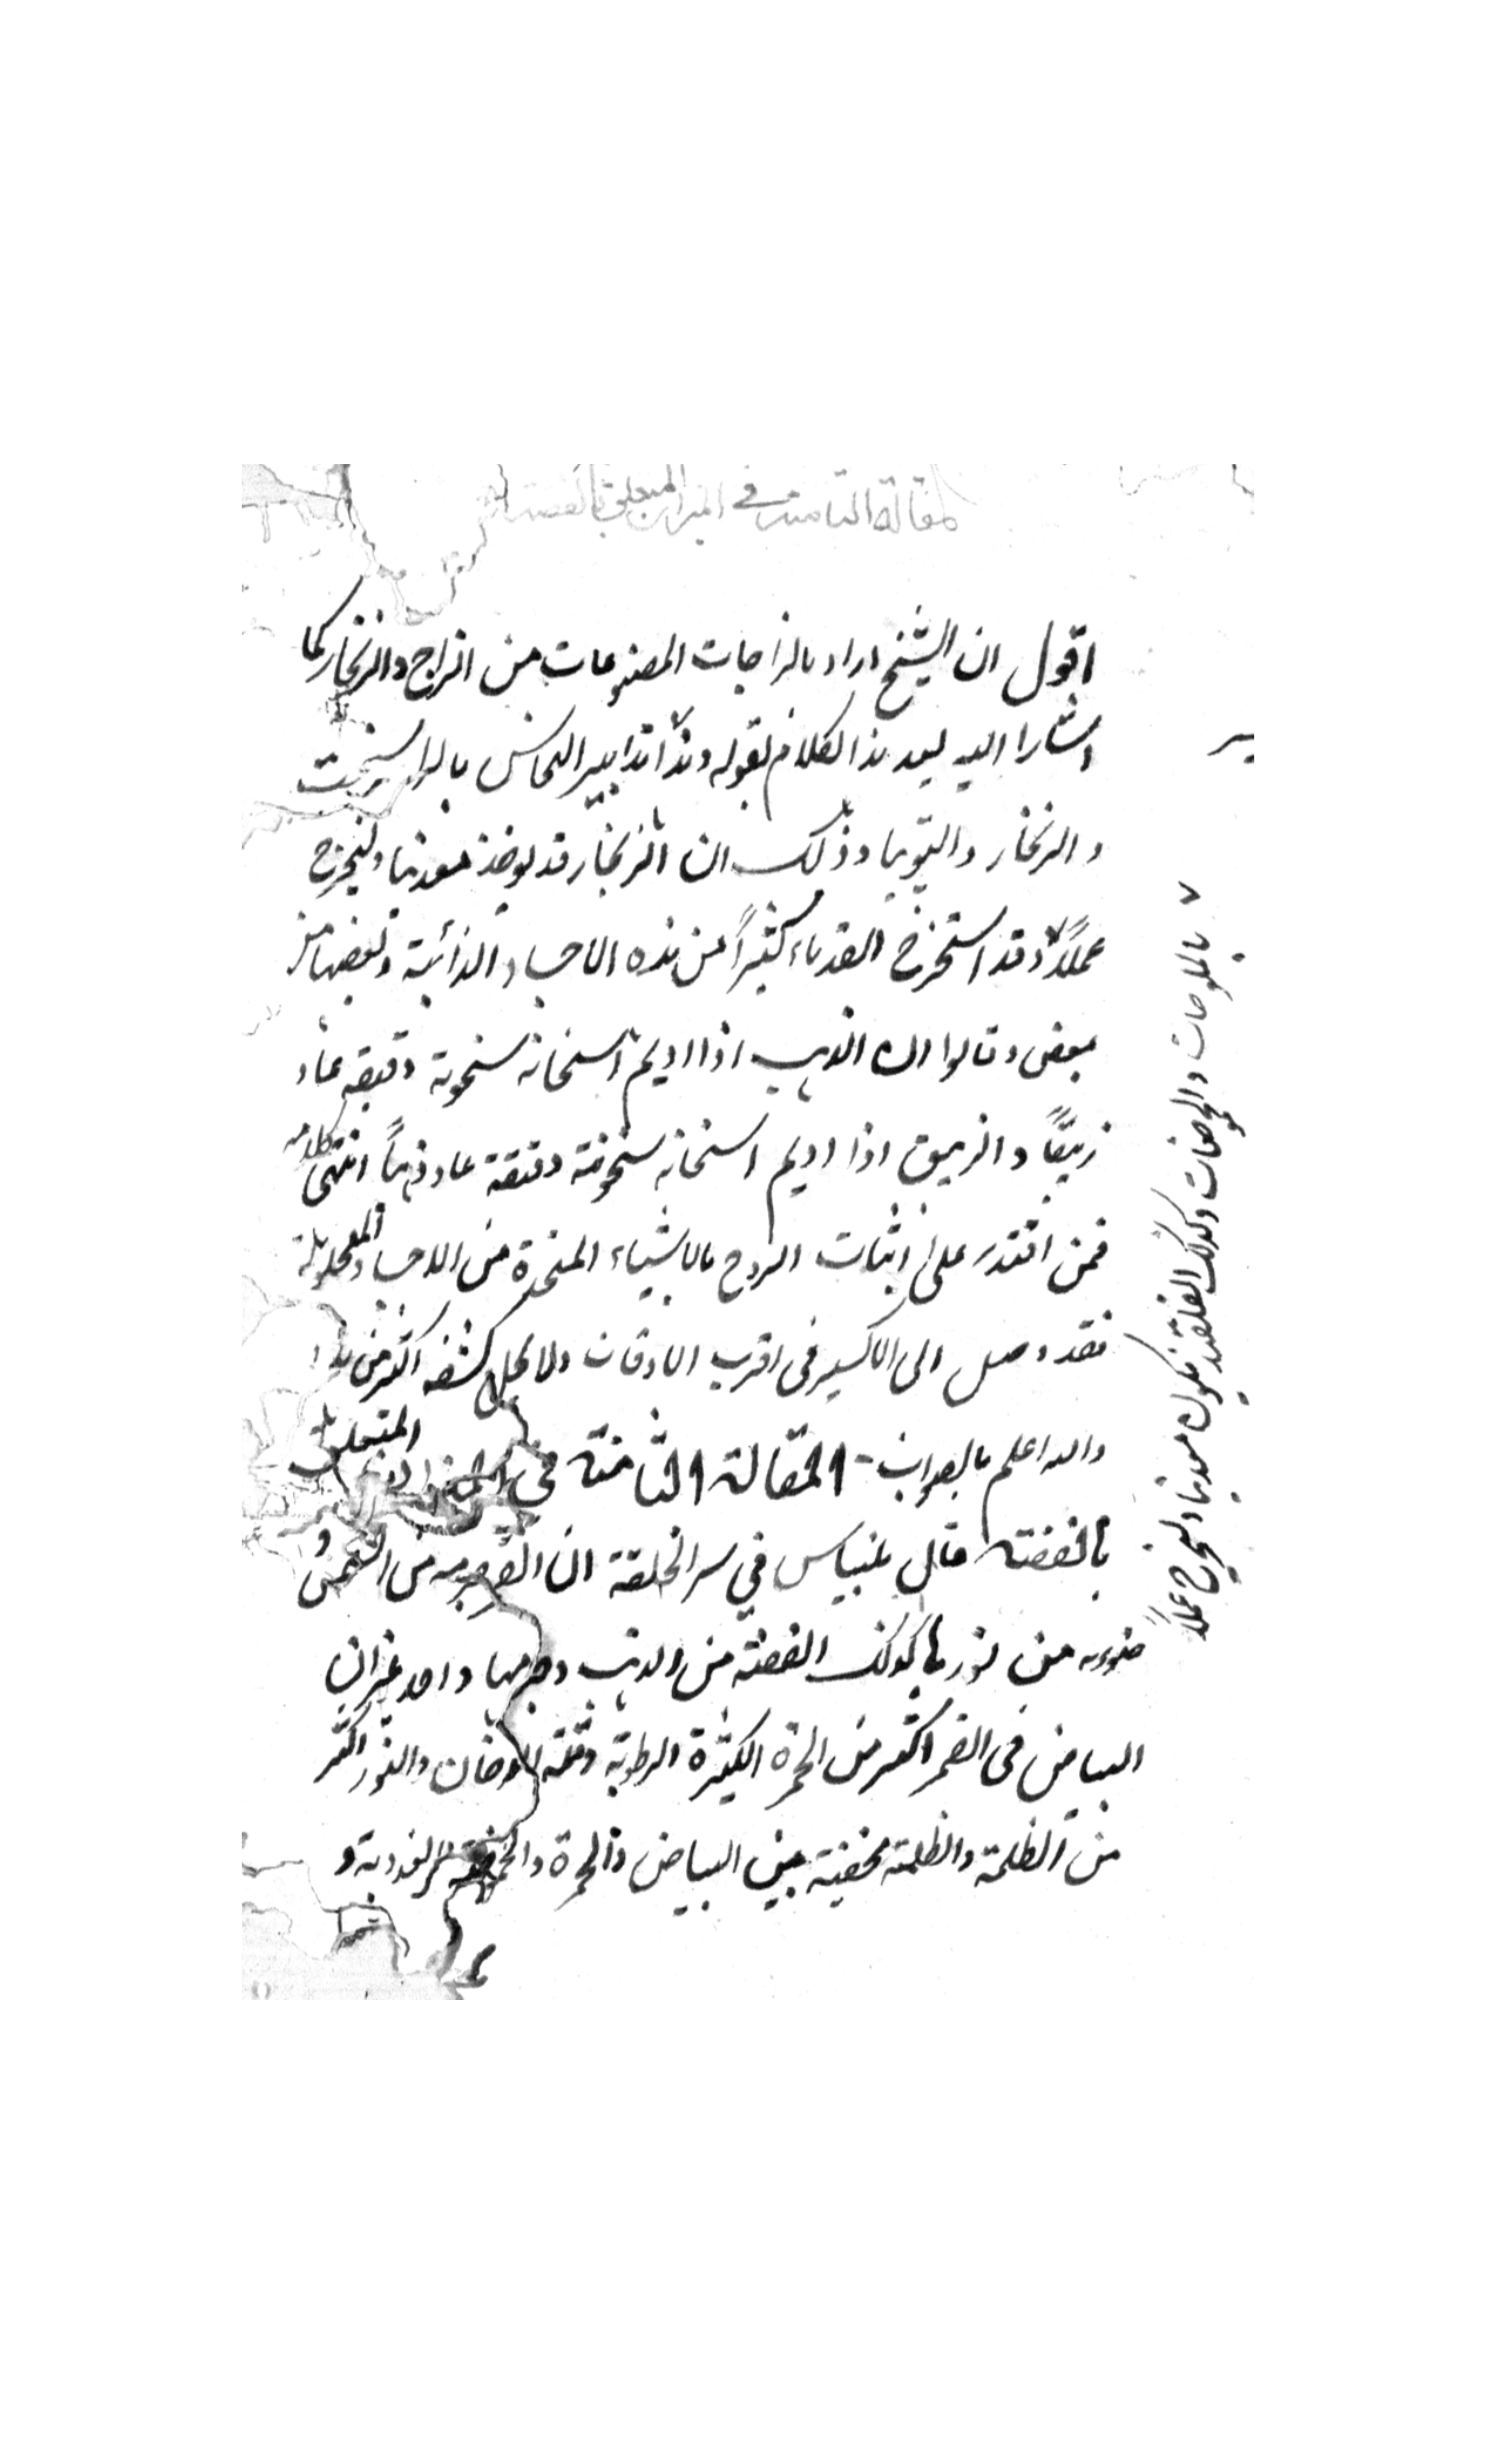 مقالة الثامنة في الميزان المتعلق بالفضة
اقول ان الشيخ اراد بالزاجات المصنوعات من الزاج والزنجار كما
اشار اليه بعد هذا الكلام بقوله وهذا تدابير النحاس بالراسخت
والزنجار والتوتيا وذلك ان الزنجار قد يوخذ معدنيا ويخرج
عملاً وقد استخرج القدماء كثيراً من هذه الاجساد الذائبة وبعضها من
بعض وقالوا ان الذهب اذا اديم اسخانه سخونة دقيقه عاد
زيبقاً والزيبق اذا اديم اسخانه سخونة دقيقة عاد ذهباً انتهى كلامه
فمن اقتدر على اثبات الروح بالاشياء المتخذة من الاجساد المحلولة
فقد وصل الى الاكسير في اقرب الاوقات ولا يحل كشفه اكثر من هذا
والله اعلم بالصواب المقالة الثامنة في الميزان المتعلق
بالفضة قال بلنياس في سر الخلقة ان القمر من الشمس و
ضوءه من نورها كذلك الفضة من الذهب وجرمها واحد غير ان
البياض في القمر اكثر من الحمرة لكثرة الرطوبة وقلة الدخان والنور اكثر
من الظلمة والظلمة مخفية بين البياض والحمرة و
بالملوحات والحموضات وكذلك القلقند يكون معدنيا ويخرج عملاً